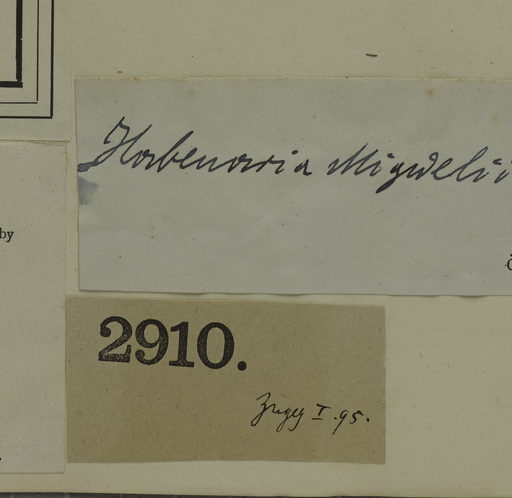 by
Habenaria Miquelii
2910.
I.95.